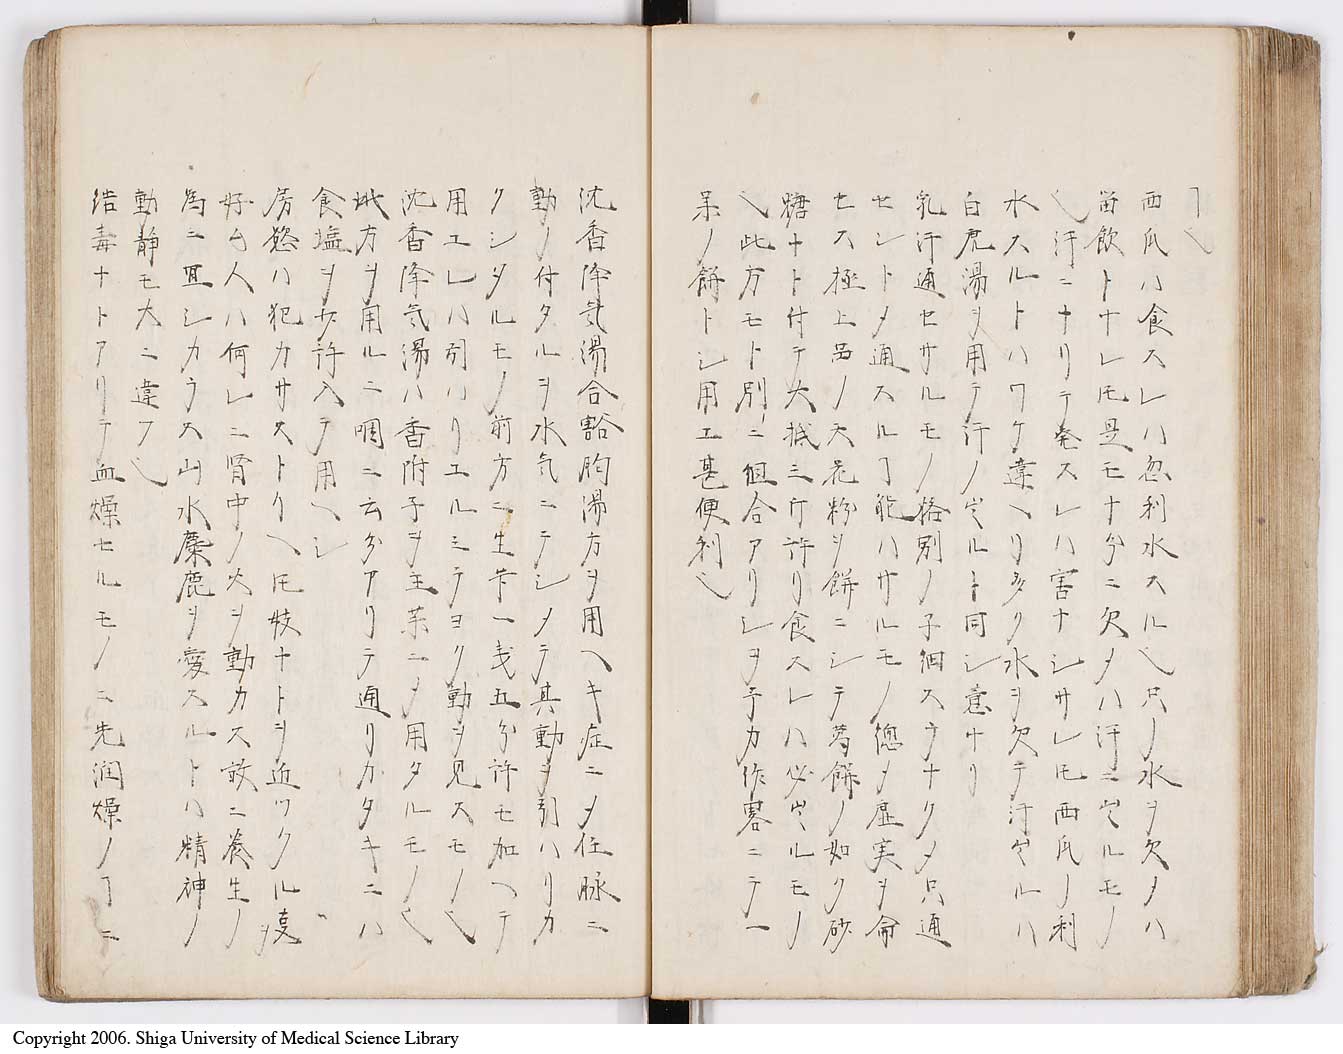 ヿ也
西瓜ハ食スレハ忽利水スル也只ノ水ヲ欠メハ
畄飲トナレ𪜈是モナ分ニ欠メハ汗ニ出ルモノ
也汗ニナリテ発スレハ害ナシサレ𪜈西瓜ノ利
水スルトハワケ違ヘリ多ク水ヲ欠テ汗出ルハ
白虎湯ヲ用テ汗ノ出ルト同シ意ナリ
乳汁通セサルモノ格別ノ子細スウナクメ只通
セシトメ通スルヿ能ハサルモノ總メ虚実ヲ論
セス極上品ノ天花粉ヲ餅ニシテ葛餅ノ如ク砂
糖ナト付テ大抵三斤許リ食スレハ必出ルモノ
也此方モト別ニ組合アリシヲ予カ作畧ニテ一
味ノ餅トシ用エ甚便利也
沈香降気湯合豁胸湯方ヲ用ヘキ症ニメ任脉ニ
動ノ付タルヲ水気ニテシメテ其動ヲ引ハリカ
クシタルモノ前方ニ生芐一戔五分許モ加ヘテ
用エレハ引ハリエルミテヨリ動ヲ見スモノ也
沈香降気湯ハ香附子ヲ主薬ニメ用タルモノ也
此方ヲ用ルニ咽ニ云分アリテ通リカタキニハ
食塩ヲ少許入テ用ヘシ
房慾ハ犯カサストリヘ𪜈妓ナトヲ近ツクル叓ヲ
好ム人ハ何レニ腎中ノ火ヲ動カス故ニ養生ノ
為ニ宜シカラス山水麋鹿ヲ愛スルトハ精神ノ
動静モ大ニ違フ也
結毒ナトアリテ血燥セルモノニ先潤燥ノヿニ
Copyright 2006. Shiga University of Medical Science Library